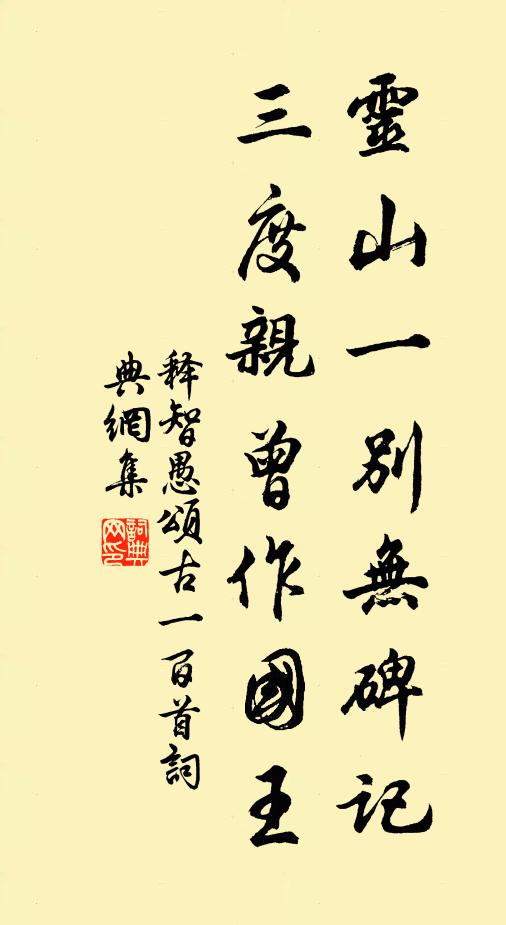 靈山一別無碑記
三度親曾作國王
釋智愚頌古一百首詞
典網集
詞典網印